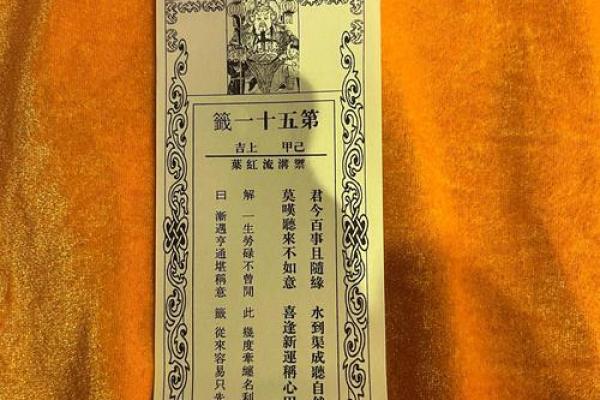 第五十一籤
己甲 上吉
禦溝流紅葉
君今百事且隨緣 水到渠成聽自然
莫嘆聽來不如意 喜逢新運稱心
解 一生勞碌不曾閒 此 幾度牽纏名利
曰 漸遇亨通堪稱意 籤 從來容易只